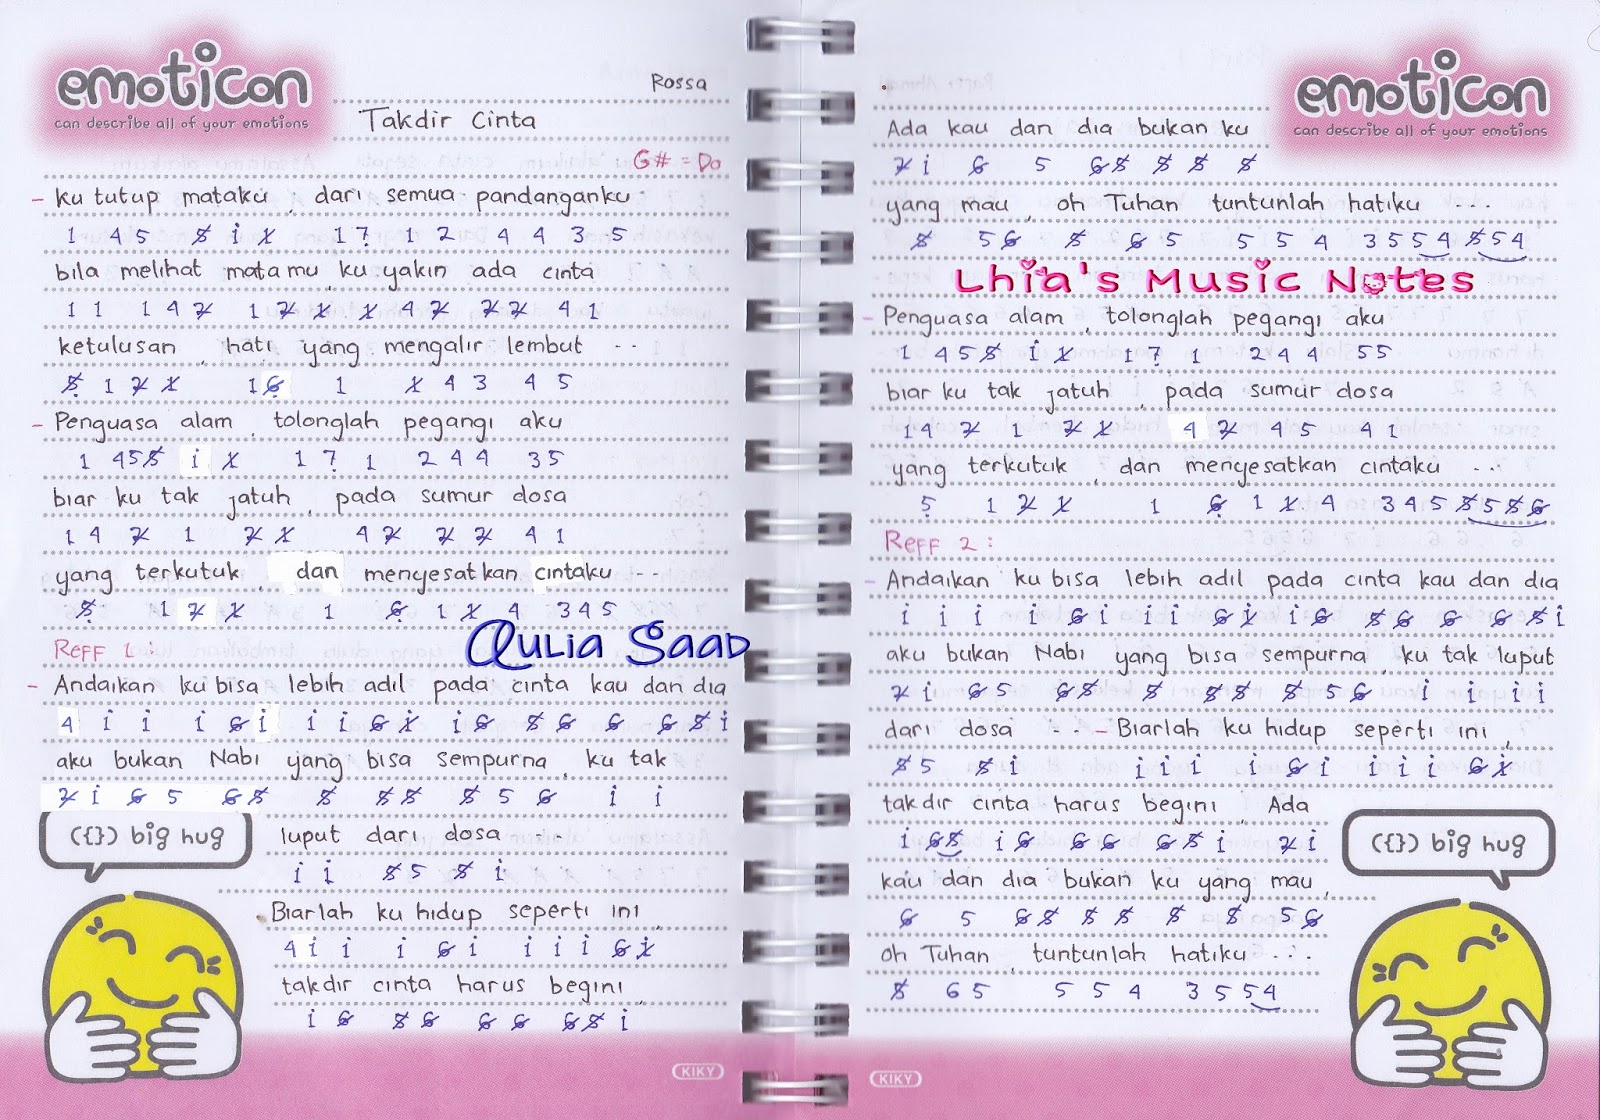 emoticon
can describe all of your emotions
Rossa
Takdir Cinta
G# = Do
- ku tutup mataku , dari semua pandanganku
1 4 5 5̸ i 1̸ 1 7̣ 1 2 4 4 3 5
bila melihat matamu, ku yakin ada cinta
1 1 1 4 2̸ 1 2̸ 1̸ 1̸ 4 2̸ 2̸ 2̸ 4 1
ketulusan , hati yang mengalir lembut ..
5̸ 1 2̸ 1̸ 1 6̸ 1 1̸ 4 3 4 5
- Penguasa alam , tolonglah pegangi aku
1 4 5 5̸ i 1̸ 1 7̣ 1 2 4 4 3 5
biar ku tak jatuh , pada sumur dosa
1 4 2̸ 1 2̸ 1̸ 4 2̸ 2̸ 2̸ 4 1
yang terkutuk dan menyesatkan cintaku ...
5̸ 1 2̸ 1̸ 1 6̸ 1 1̸ 4 3 4 5
Aulia Saad
Reff 1 :
- Andaikan ku bisa lebih adil pada cinta kau dan dia
4 i i i 6̸ i i i 6̸ 1̸ i 6̸ 5̸ 6̸ 6̸ 6̸ 5̸ i
aku bukan Nabi yang bisa sempurna , ku tak
2̸ i 6̸ 5 6̸ 5̸ 5̸ 5̸ 5̸ 5̸ 5 6̸ i i
({}) big hug
luput dari dosa ..
i i 5̸ 5 5̸ i
Biarlah ku hidup seperti ini,
4 i i i 6̸ i i i i 6̸ 1̸
takdir cinta harus begini,
i 6̸ 5̸ 6̸ 6̸ 6̸ 6̸ 5̸ i
KIKY
emoticon
can describe all of your emotions
Ada kau dan dia bukan ku
2̸ i 6̸ 5 6̸ 5̸ 5̸ 5̸ 5̸
yang mau , oh Tuhan tuntunlah hatiku ...
5̸ 5 6̸ 5̸ 6̸ 5 5 5 4 3 5 5 4 5̸ 5 4
Lhia's Music Notes
- Penguasa alam , tolonglah pegangi aku
1 4 5 5̸ i 1̸ 1 7̣ 1 2 4 4 5 5
biar ku tak jatuh , pada sumur dosa
1 4 2̸ 1 2̸ 1̸ 4 2̸ 4 5 4 1
yang terkutuk , dan menyesatkan cintaku ...
5̣ 1 2̸ 1̸ 1 6̸ 1 1̸ 4 3 4 5 5̸ 5 5̸ 6̸
Reff 2 :
- Andaikan ku bisa lebih adil pada cinta kau dan dia
i i i i 6̸ i i i 6̸ 1̸ i 6̸ 5̸ 6̸ 6̸ 6̸ 5̸ i
aku bukan Nabi yang bisa sempurna , ku tak luput
2̸ i 6̸ 5 6̸ 5̸ 5̸ 5̸ 5̸ 5̸ 5 6̸ i i i i
dari dosa .. - Biarlah ku hidup seperti ini ,
5̸ 5 5̸ i i i i i 6̸ i i i i 6̸ 1̸
takdir cinta harus begini , Ada
i 6̸ 5̸ i 6̸ 6̸ 6̸ 6̸ 5̸ i 2̸ i
({}) big hug
kau dan dia bukan ku yang mau,
6̸ 5 6̸ 5̸ 5̸ 5̸ 5̸ 5̸ 5 6̸
oh Tuhan , tuntunlah hatiku ...
5̸ 6 5 5 5 4 3 5 5 4
KIKY